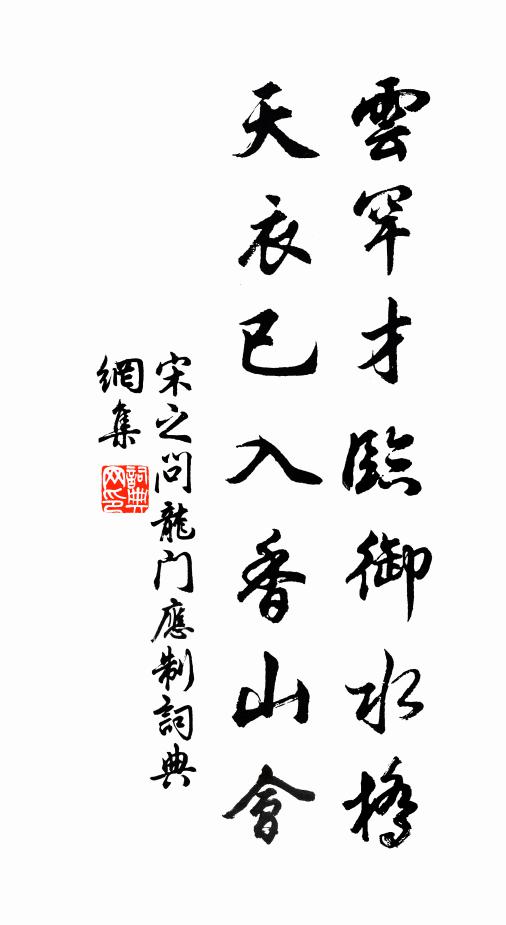 雲罕才臨御水橋
天衣已入香山會
宋之問龍門應制詞典
網集
詞典
网印